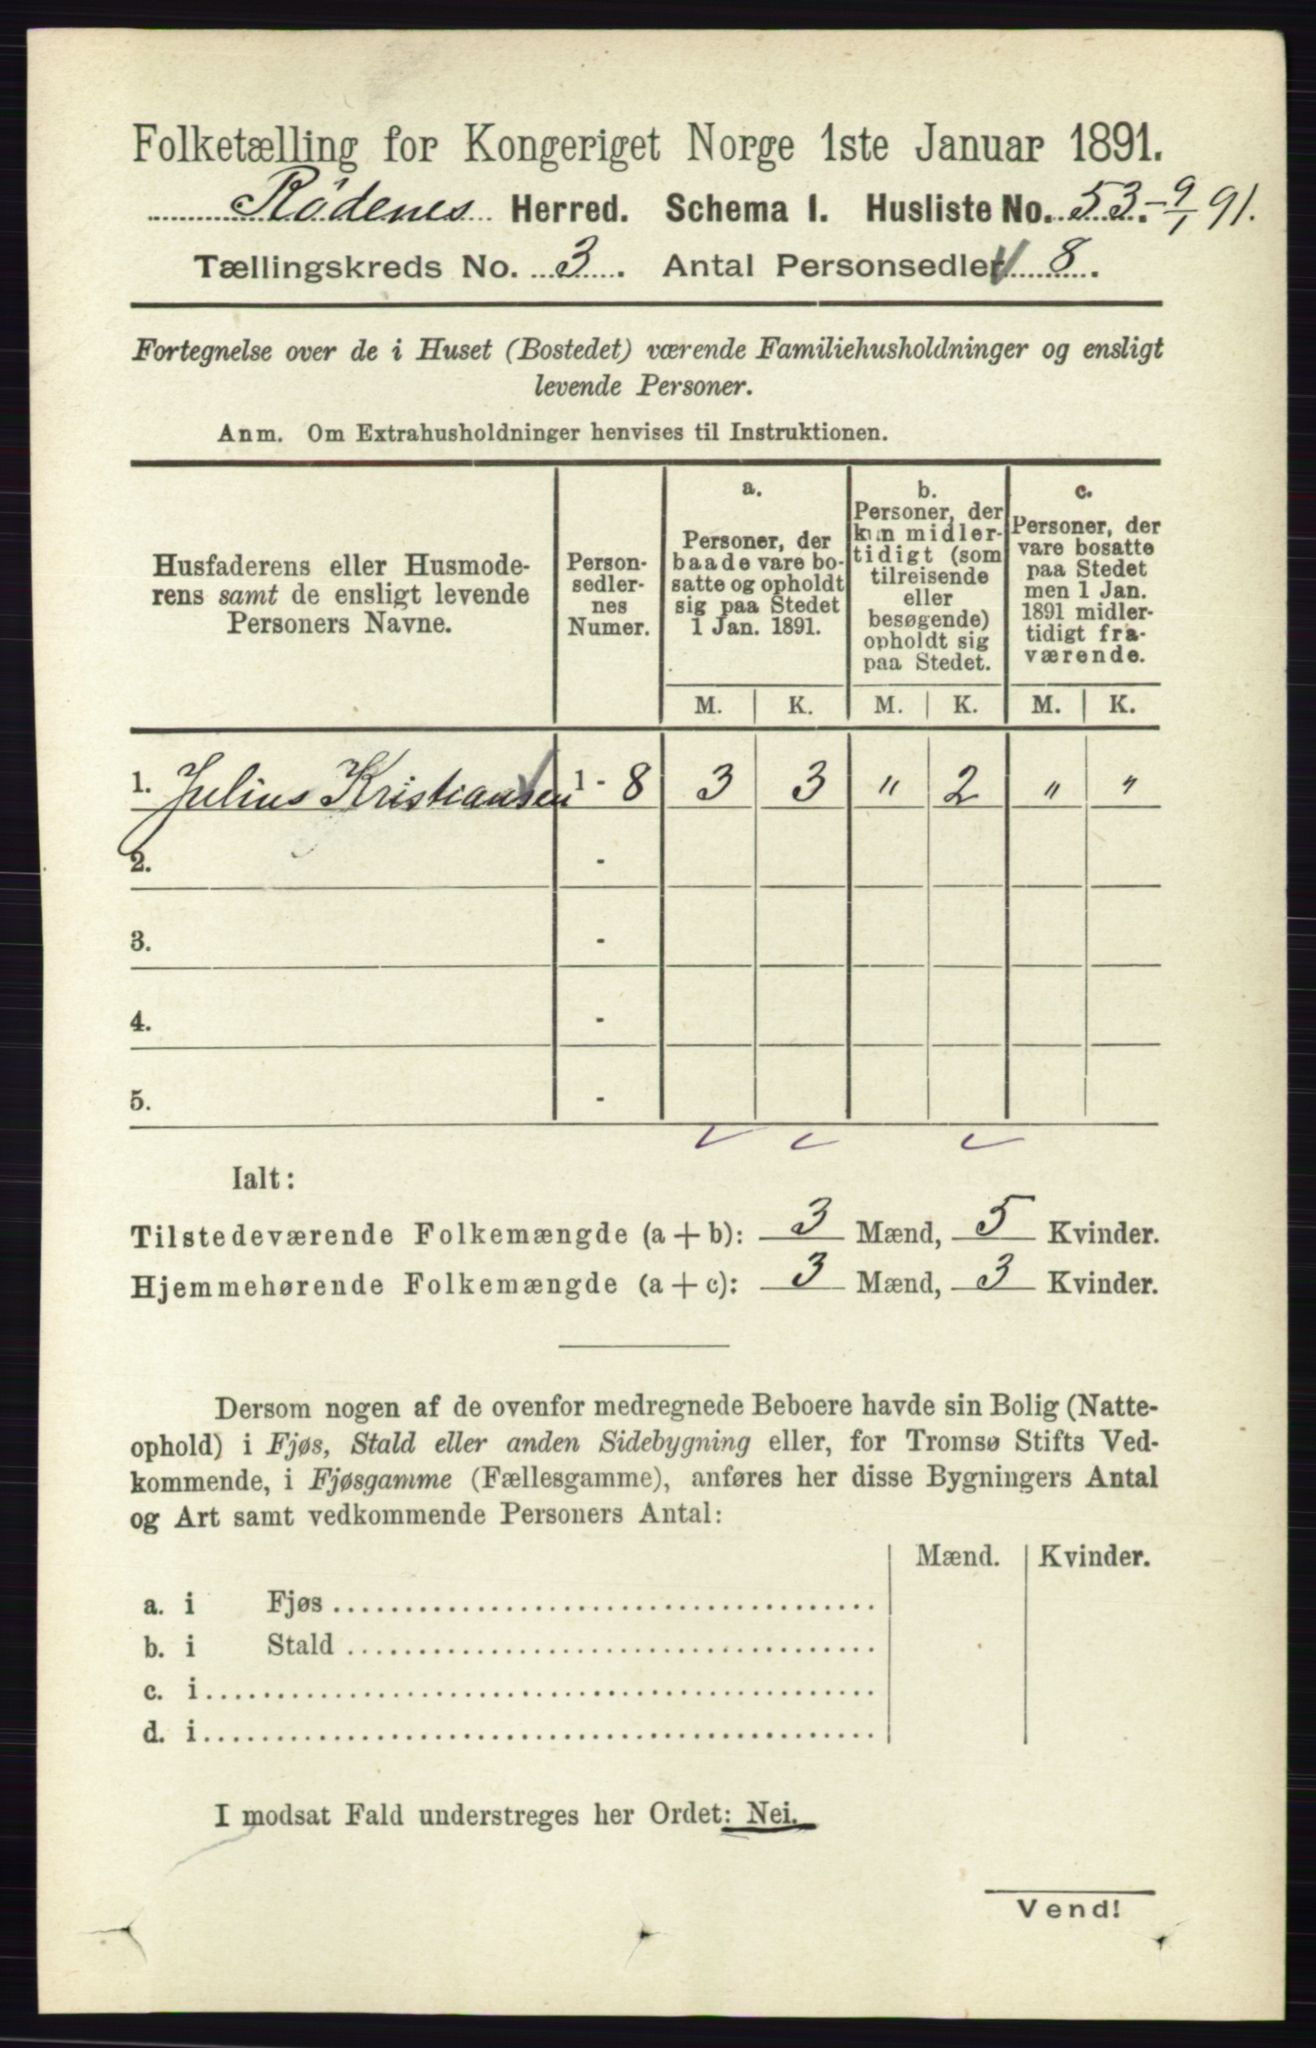 Folketælling for Kongeriget Norge 1ste Januar 1891.
Rödenes Herred. Schema I. Husliste No. 53. - 9/1 91.
Tællingskreds No. 3. Antal Personsedler 8.
Fortegnelse over de i Huset (Bostedet) værende Familiehusholdninger og ensligt
levende Personer.
Anm. Om Extrahusholdninger henvises til Instruktionen.
Husfaderens eller Husmode-
rens samt de ensligt levende
Personers Navne.
Person-
sedler-
nes
Numer.
a.
Personer, der
baade vare bo-
satte og opholdt
sig paa Stedet
1 Jan. 1891.
b.
Personer, der
kun midler-
tidigt (som
tilreisende
eller
besøgende)
opholdt sig
paa Stedet.
c.
Personer, der
vare bosatte
paa Stedet
men 1 Jan.
1891 midler-
tidigt fra-
værende.
M. K. M. K. M. K.
1. Julius Kristiansen 1 - 8 3 3 " 2 " "
2. -
3. -
4. -
5. -
Ialt:
Tilstedeværende Folkemængde (a + b): 3 Mænd, 5 Kvinder.
Hjemmehørende Folkemængde (a + c): 3 Mænd, 3 Kvinder.
Dersom nogen af de ovenfor medregnede Beboere havde sin Bolig (Natte-
ophold) i Fjøs, Stald eller anden Sidebygning eller, for Tromsø Stifts Ved-
kommende, i Fjøsgamme (Fællesgamme), anføres her disse Bygningers Antal
og Art samt vedkommende Personers Antal:
Mænd. Kvinder.
a. i Fjøs
b. i Stald
c. i
d. i
I modsat Fald understreges her Ordet: Nei.
Vend!